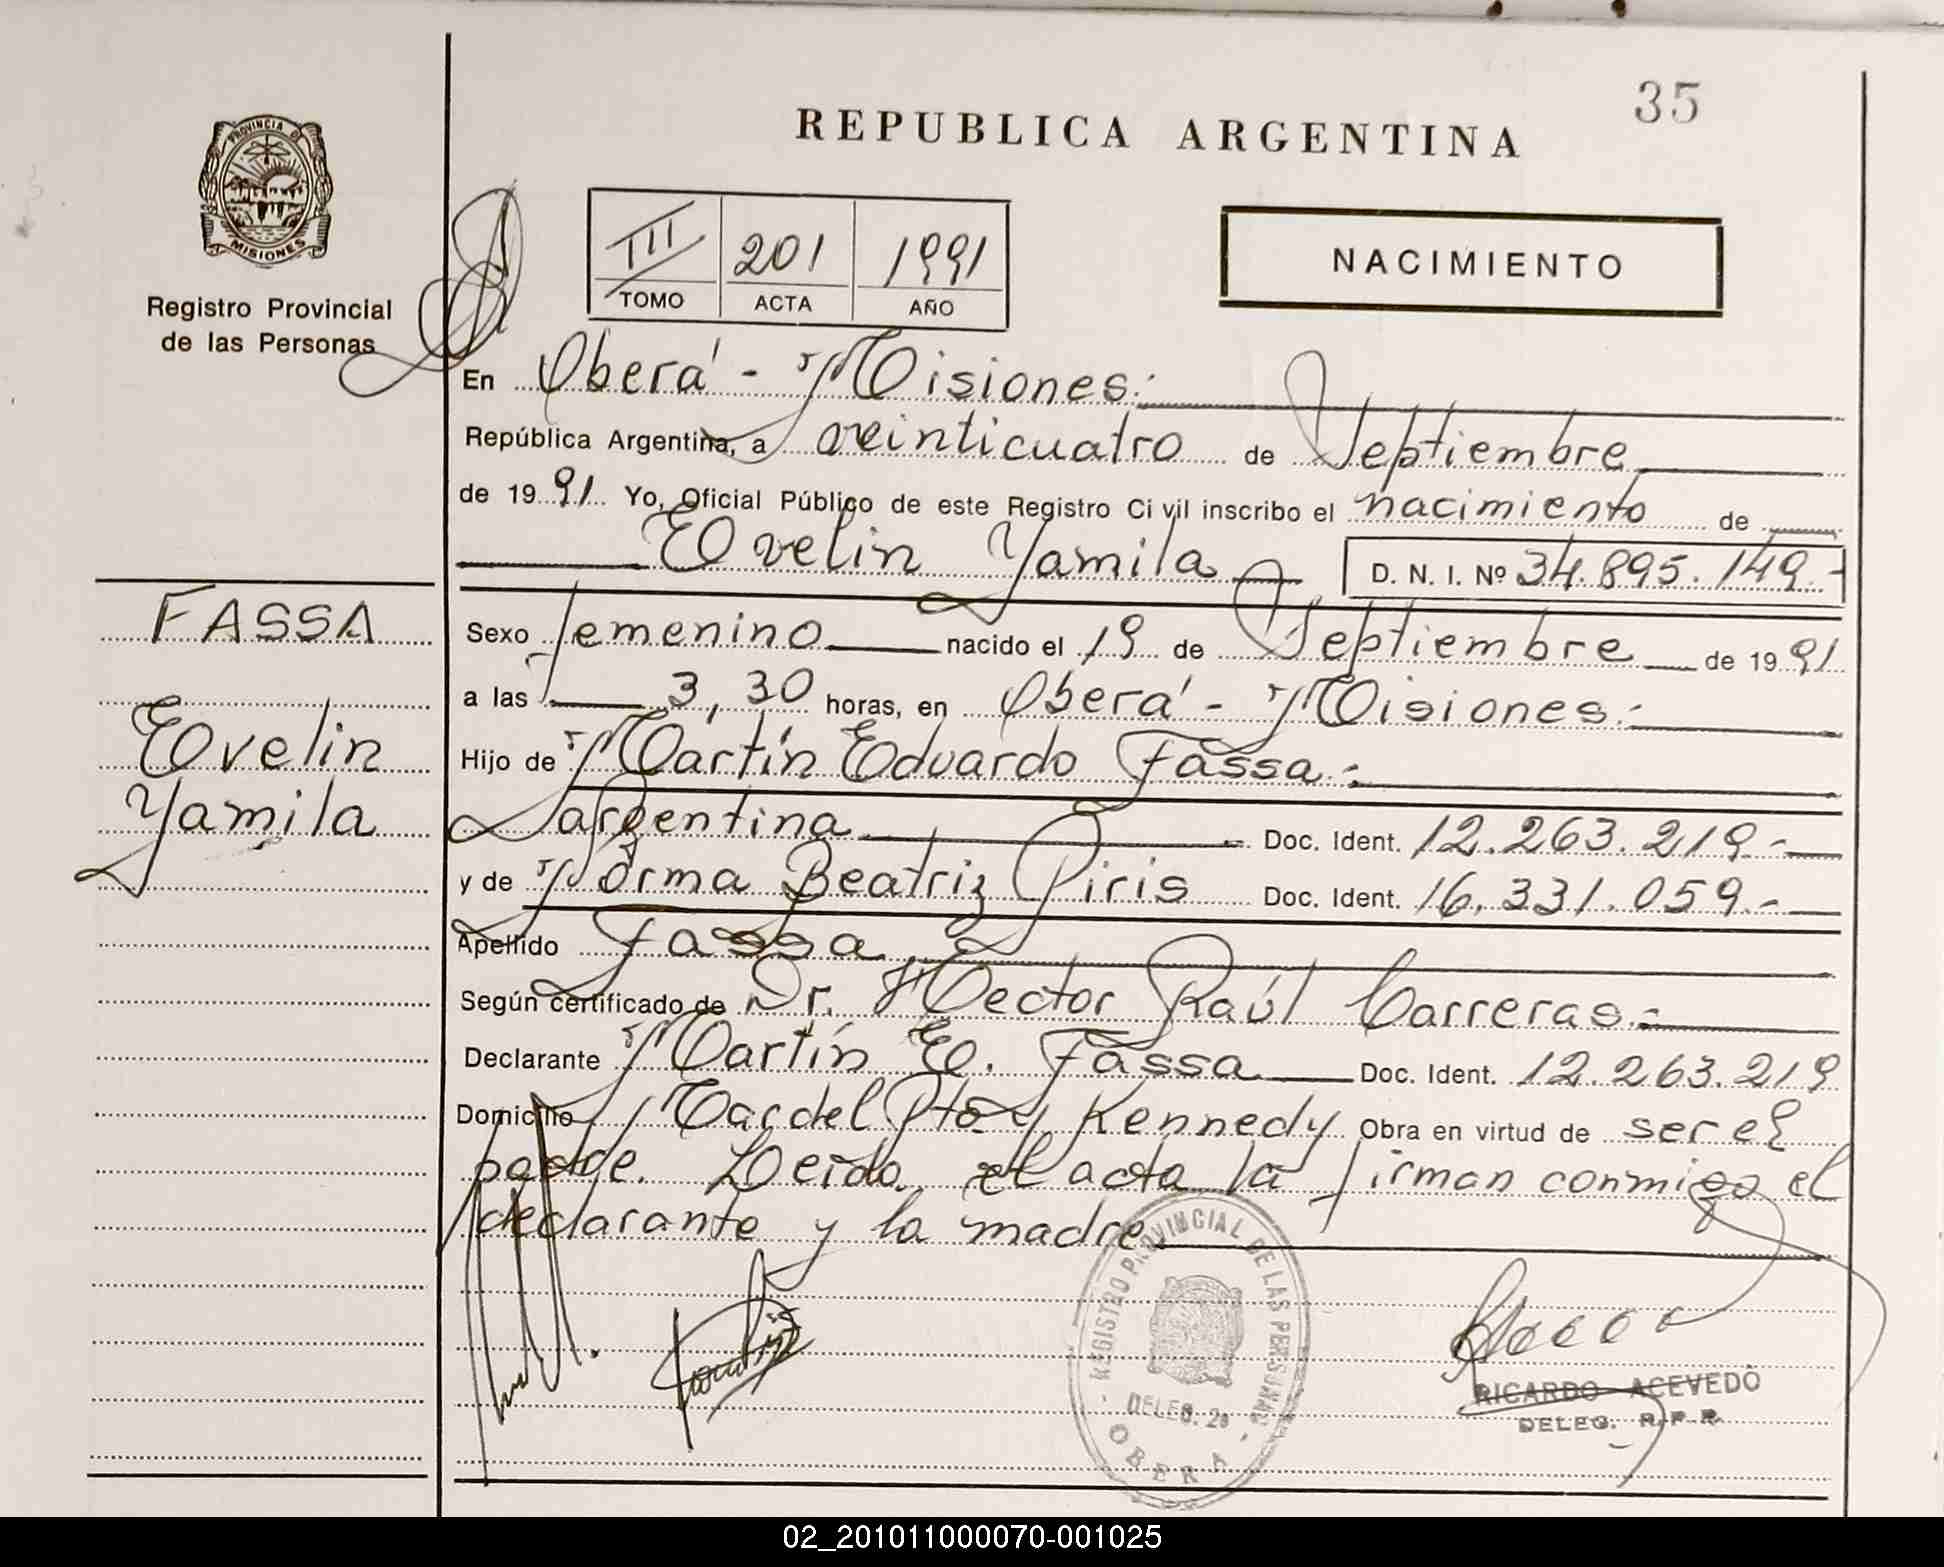 35
REPUBLICA ARGENTINA
PROVINCIA DE
MISIONES
Registro Provincial
de las Personas
III 201 1991
TOMO ACTA AÑO
NACIMIENTO
En Oberá - Misiones:
República Argentina, a veinticuatro de Septiembre
de 1991 Yo, Oficial Público de este Registro Civil inscribo el nacimiento de
Evelin Yamila D. N. I. Nº 34.895.149.-
FASSA
Evelin
Yamila
Sexo femenino nacido el 19 de Septiembre de 1991
a las 3,30 horas, en Oberá - Misiones.-
Hijo de Martín Eduardo Fassa.-
argentina Doc. Ident. 12.263.219.-
y de Norma Beatriz Piris Doc. Ident. 16.331.059.-
Apellido Fassa
Según certificado de Dr. Hector Raúl Carreras.-
Declarante Martín E. Fassa Doc. Ident. 12.263.219
Domicilio Mar del Pta y Kennedy Obra en virtud de ser el
padre. Leida el acta la firman conmigo el
declarante y la madre
REGISTRO PROVINCIAL DE LAS PERSONAS
DELEG.
OBERA
RICARDO ACEVEDO
DELEG. R.P.P.
02_201011000070-001025